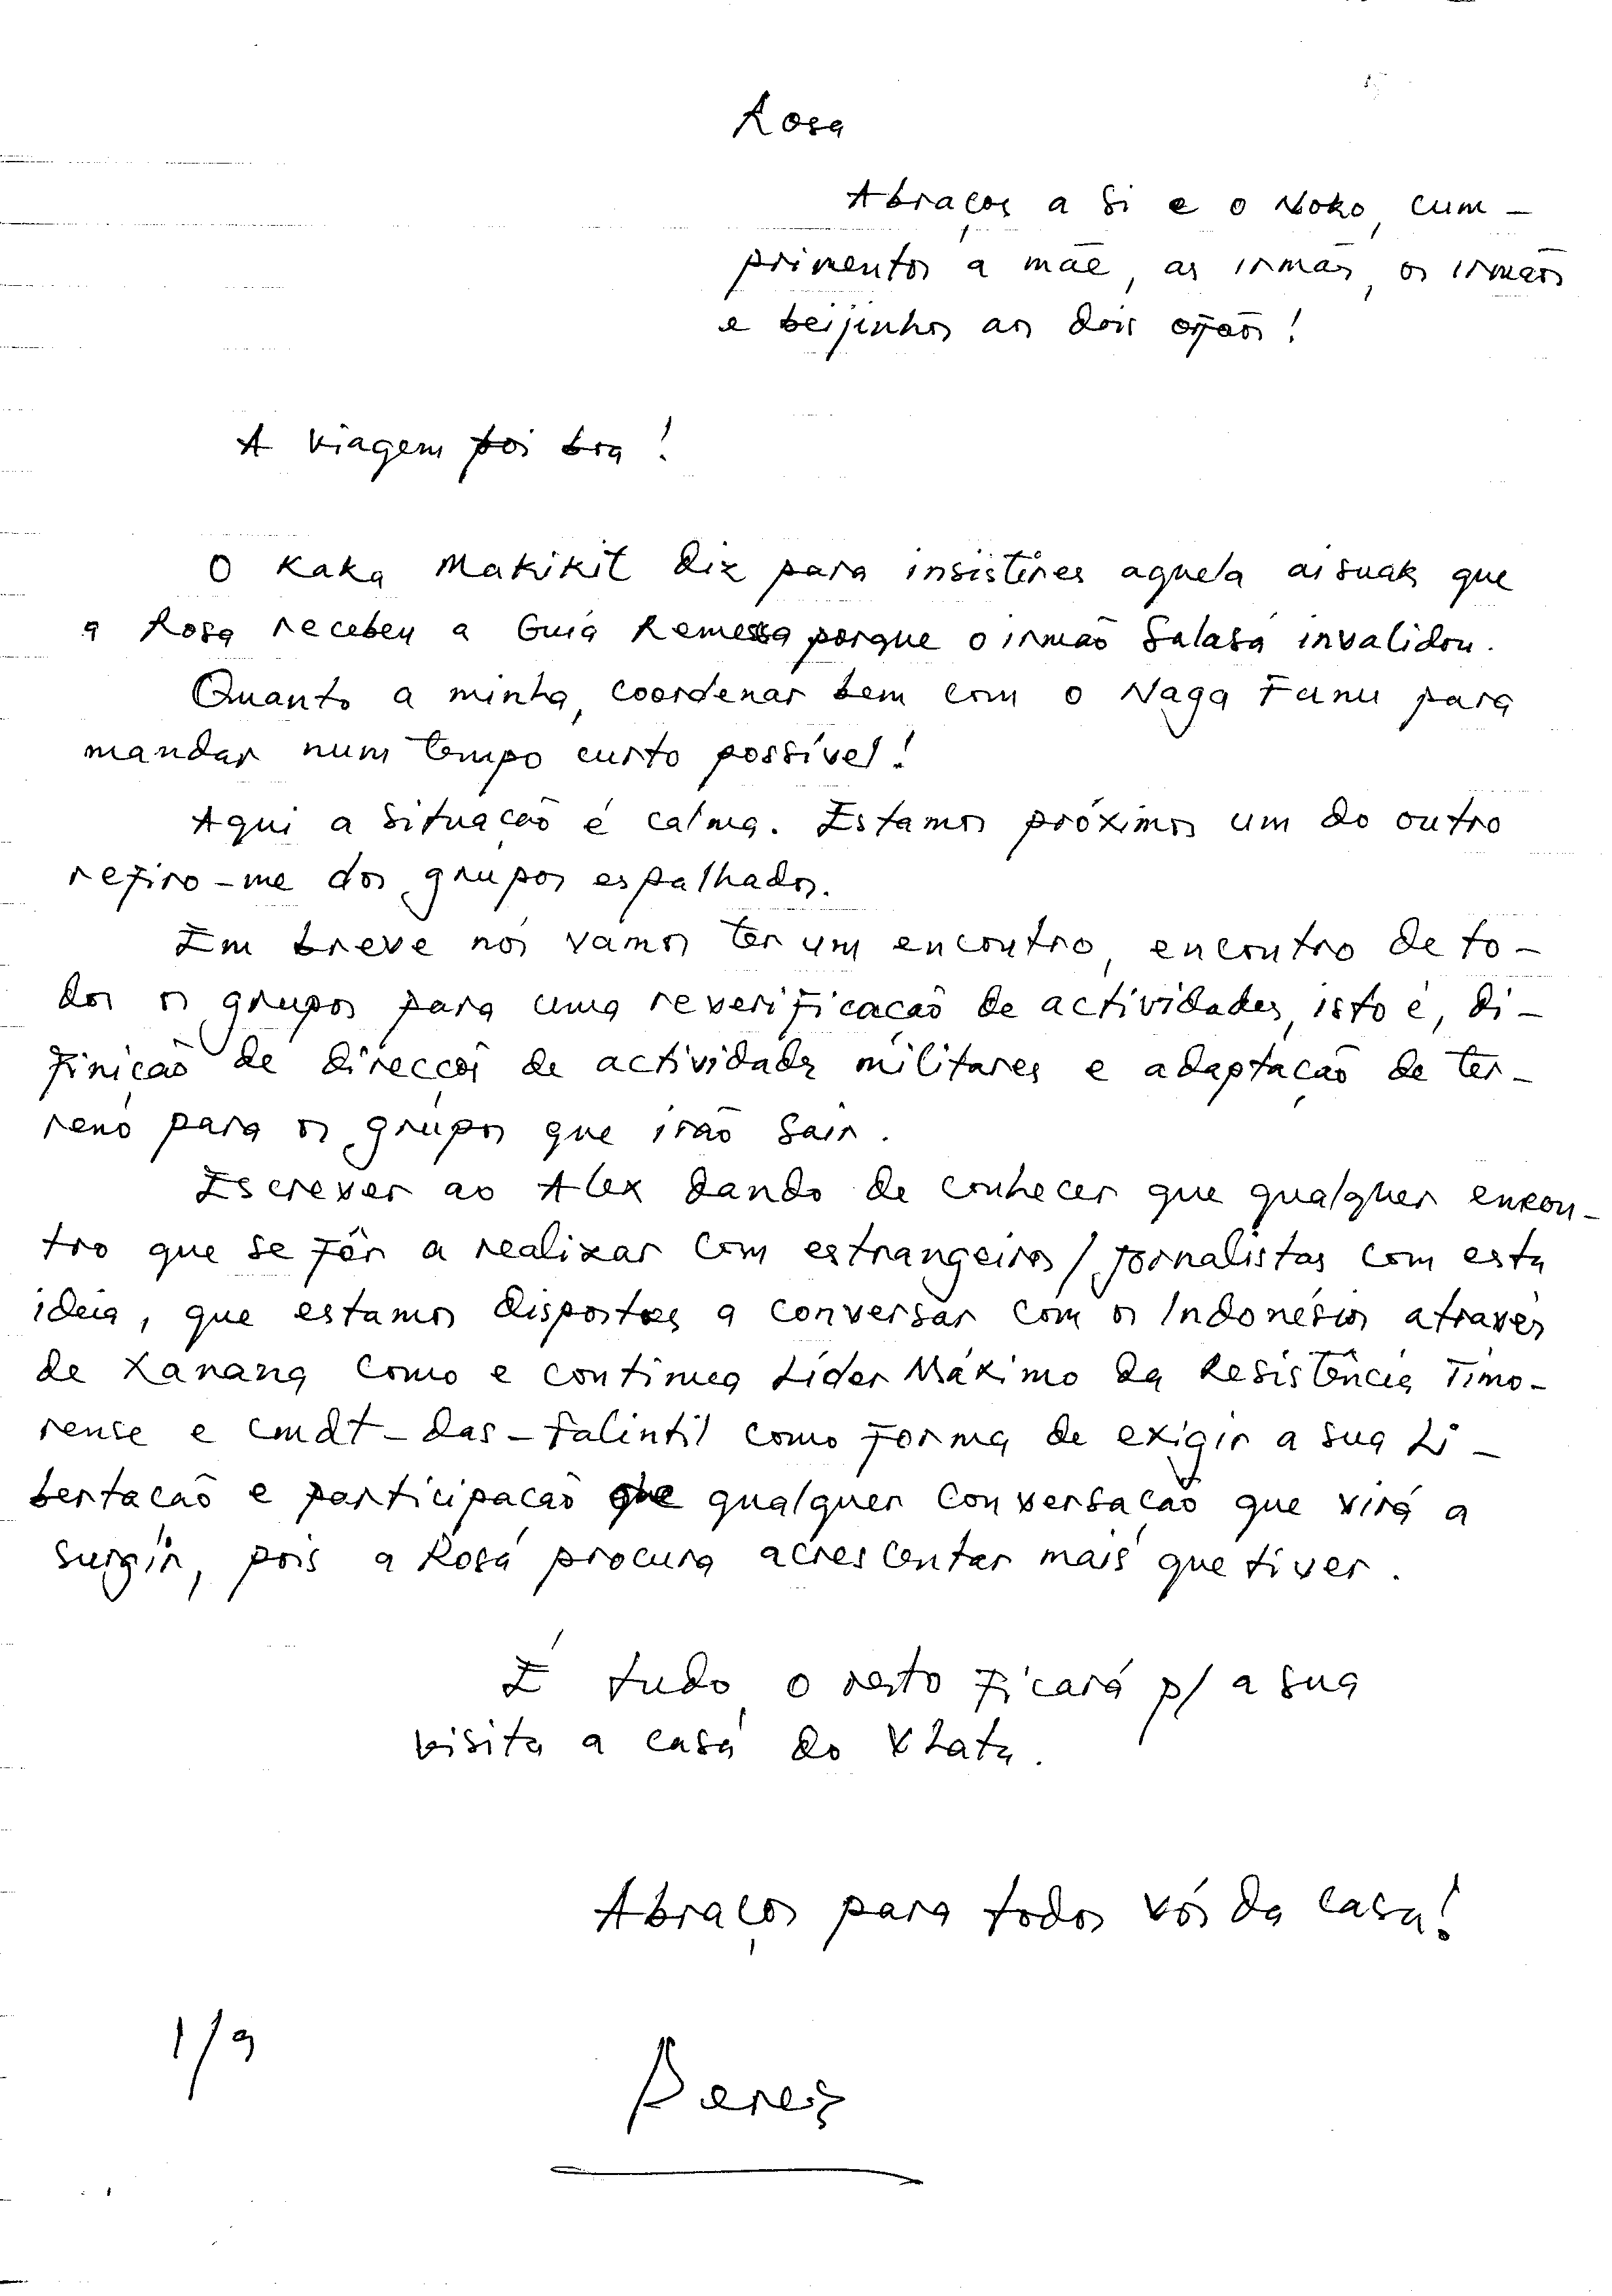 Rosa
Abraços a Si e o Noko, cum-
primentos a mãe, as irmãs, os irmãos
e beijinhos aos dois
A viagem foi boa!
O Kaka Makikit diz para insistires aquela aisuak que
a Rosa recebeu a Guia Remessa porque o irmão Salasa invalidou.
Quanto a minha, coordenar bem com o Naga Fanu para
mandar num tempo curto possível!
Aqui a situação é calma. Estamos próximos um do outro
refiro-me dos grupos espalhados.
Em breve nós vamos ter um encontro, encontro de to-
dos os grupos para uma reverificacão de actividades, isto é, di-
finicão de direcções de actividades militares e adaptação de ter-
reno para os grupos que irão sair.
Escrever ao Alex dando de conhecer que qualquer encon-
tro que se fôr a realizar com estrangeiros/jornalistas com esta
ideia, que estamos dispostos a conversar com os Indonésios através
de Xanana como e continua Líder Máximo da Resistência Timo-
rense e cmdt-das-Falintil como forma de exigir a sua li-
bertacão e participacão qualquer conversação que virá a
surgir, pois a Rosa procura acrescentar mais que tiver.
É tudo, o resto ficará p/ a sua
visita a casa do
Abraços para todos vós da casa!
1/9
Pereiz